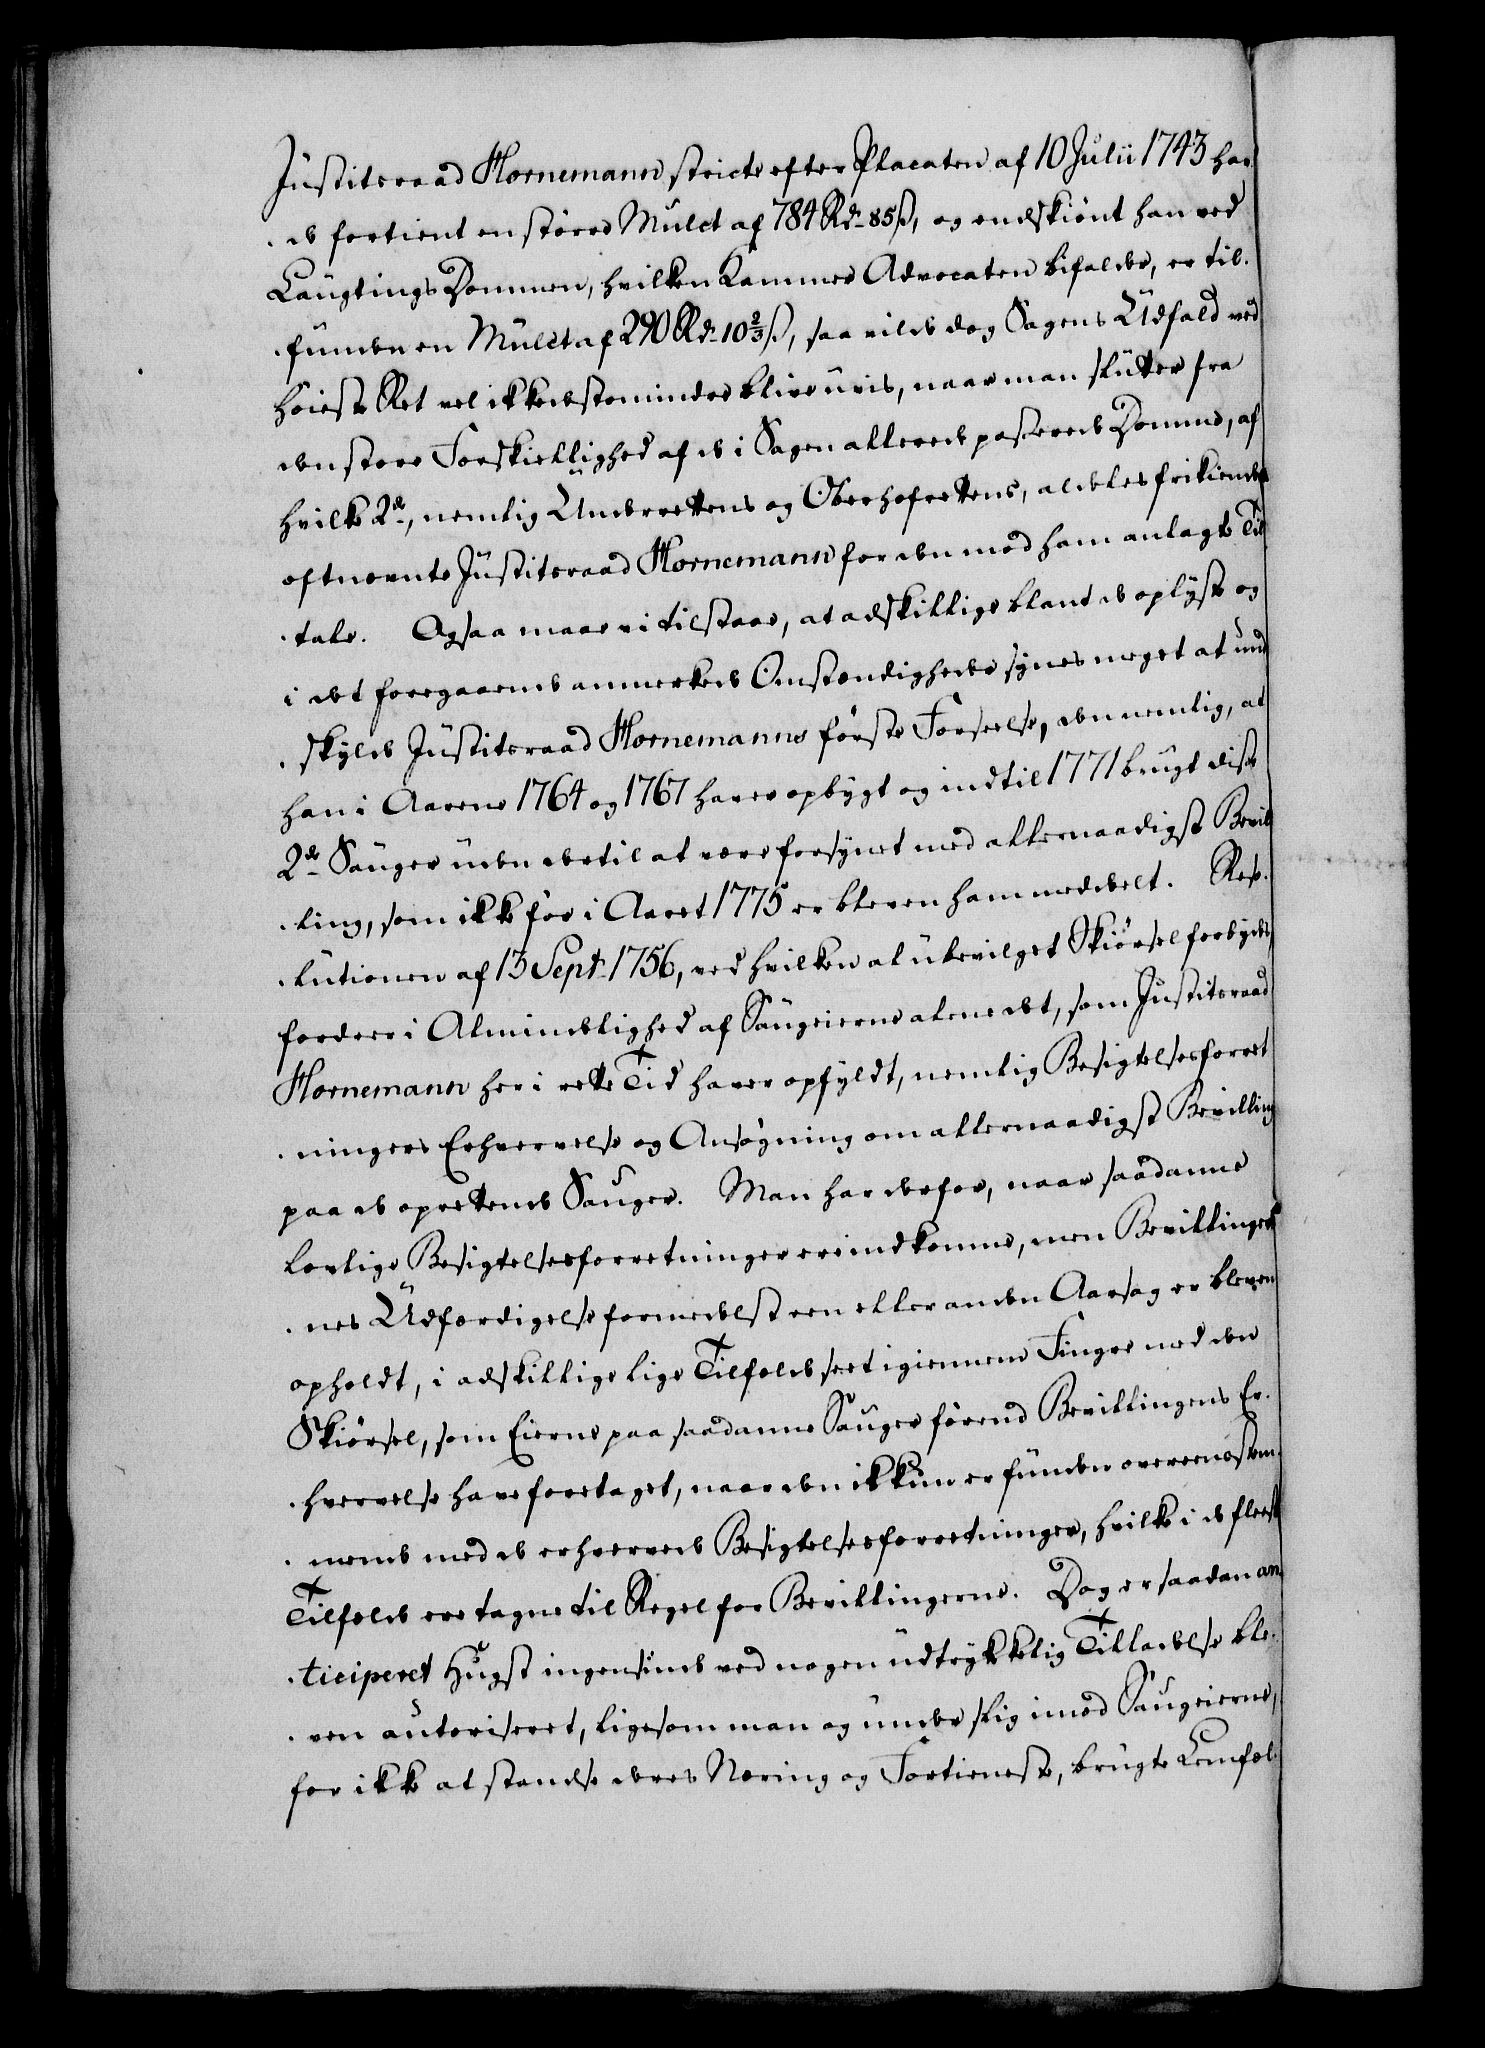 Justitsraad Hornemann stricte efter Placaten af 10 Julii 1743 hav-
-de fortient en større Mulct af 784 Rd. 85 ß, og endskiønt han ved
Laugtings Dommen, hvilken Kammer Advocaten bifalder, er til-
-funden en Mulct af 290 Rd. 10 2/3 ß, saa vilde dog Sagens Udfald ved
høieste Ret vel ikke destomindre blive uvis, naar man slutter fra
den store Forskiellighed af de i Sagen allerede passerede Domme, af
hvilke 2de, nemlig Underrettens og Oberhofrettens, aldeles frikiender
oftnevnte Justitsraad Hornemann for den mod ham anlagte Til-
-tale. Ogsaa maae vi tilstaae, at adskillige blant de oplyste og
i det foregaaende anmerkede Omstændigheder synes meget at und-
-skylde Justitsraad Hornemanns første Forseelse, den nemlig, at
han i Aarene 1764 og 1767 haver opbygt og indtil 1771 brugt disse
2de Sauger uden dertil at være forsynet med allernaadigst Bevil-
-ling, som ikke før i Aaret 1775 er bleven ham meddeelt. Reso-
-lutionen af 13 Sept. 1756, ved hvilken al ubevilget Skiørsel forbydes,
fordrer i Almindelighed af Saugeierne alene det, som Justitsraad
Hornemann her i rette Tid haver opfyldt, nemlig Besigtelsesforret-
-ningers Erhvervelse og Ansøgning om allernaadigst Bevilling
paa de oprettende Sauger. Man har derfor, naar saadanne
lovlige Besigtelsesforretninger ere indkomne, men Bevillinger-
-nes Udfærdigelse formedelst een eller anden Aarsag er bleven
opholdt, i adskillige lige Tilfælde seet igiennem Fingre med den
Skiørsel, som Eierne paa saadanne Sauger førend Bevillingens Er-
-hvervelse have foretaget, naar den ikkun er funden overeensstem-
-mende med de erhvervede Besigtelsesforretninger, hvilke i de fleeste
Tilfælde ere tagne til Regel for Bevillingerne. Dog er saadan an-
-ticiperet Hugst ingensinde ved nogen udtrykkelig Tilladelse ble-
-ven autoriseret, ligesom man og under slig imod Saugeierne,
for ikke at standse deres Næring og Fortieneste, brugte Lemfæl-